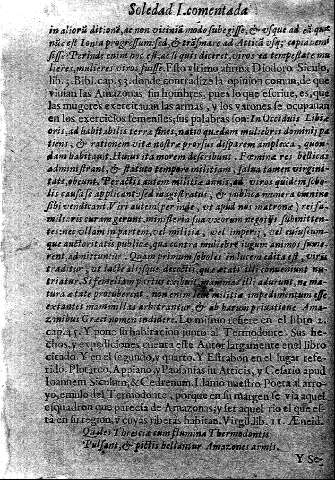 Soledad I. comentada
in aliorū ditionē, ac non vicinia modo subegisse, & vsque ad eā quæ
nūc est Ionia progressum, sed, & trāsmare ad Atticā vsq; copias emi
sisse? Perinde enim hoc est, ac si quis diceret, viros ea tempestate mu
lieres, mulieres viros fuisse. Esto vltimo afirma Diodoro Siculo,
lib. 3. Bibl. cap. 53. donde contradize la opinion comun, de que
viuian las Amazonas sin hombres, pues lo que escriue, es, que
las mugeres exercitauan las armas, y los varones se ocupauan
en los exercicios femeniles; sus palabras son: In Occiduis Libiæ
oris, ad habitabilis terræ fines, natio quædam mulebres domini pa
tiens, & rationem vitæ nostræ prorsus disparem amplexa, quon-
dam habitauit. Huius ita morem describunt. Feminæ res bellicas
administrant, & statuto tempore militiam, salua tamen virgini-
tate, obeunt. Peractis autem militiæ annis, ad viros quidem sobo-
lis causa se applicant: sed magistratus, & publica munera omnino
sibi vendicant. Viri autem perinde, vt apud nos matronæ, rei fa-
miliaris curam gerunt, ministeria suæ vxorum negotij submitten-
tes: nec vllam in partem, vel militiæ, vel imperij, vel cuiusium-
que auctoritatis publicæ, qua contra muliebre iugum animos sume-
rent, admittuntur. Quam primum soboles in lucem edita est, viris
traditur, vt lacte alijsque decoctis, quæ ætati illi conueniunt nu-
triatur. Si femellam partus exibuit, mammas illi adurunt, ne ma-
tura ætate protuberent, non enim leue militiæ impedimentum esse
extantes mammillas arbitrantur, & ab harum priuatione Ama-
zonibus Græci nomen indidere. Lo mismo refiere en el libro 2.
cap. 45. Y pone su habitacion junto al Termodonte. Sus he-
chos, y expediciones cuenta este Autor largamente en el libro
citado. Y en el segundo, y quarto. Y Estrabon en el lugar refe-
rido. Plotarco, Appiano, y Pausanias in Atticis, y Cesario apud
Ioannem Siculum, & Cedrenum. Llamò nuestro Poeta al arro-
yo, emulo del Termodonte, porque en su margen se via aquel
esquadron que parecia de Amazonas; y ser aquel rio el que es-
tà en su region, y cuyas riberas habitan. Virgil. lib. 11. Æneid.
Quales Threiciæ cum flumina Thermodontis
Pulsant, & pictis bellantur Amazones armis.
Y Se-